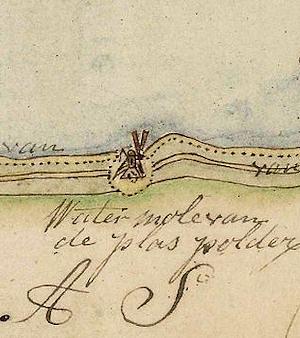 van
van
Water mole van
de plas polder
A S